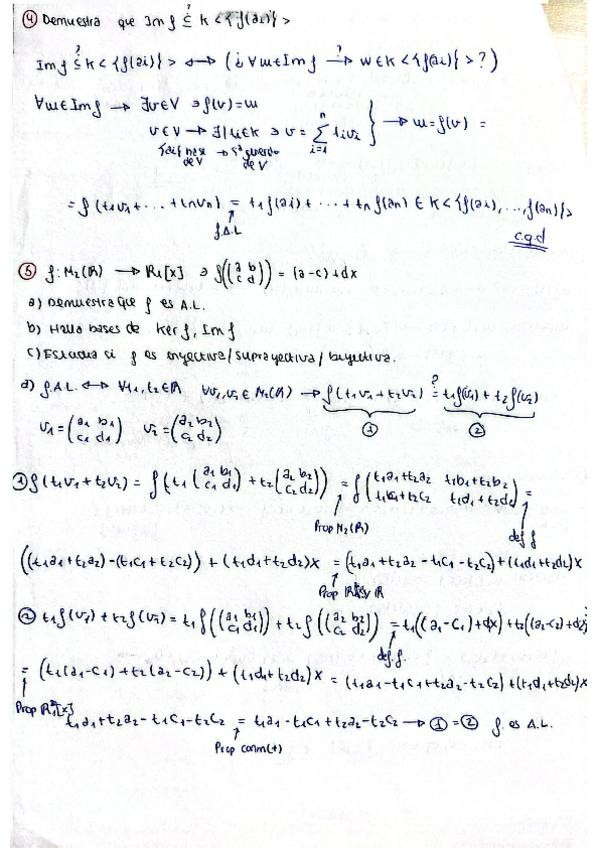 ④ Demuestra que Im f ⊆? K<{f(ai)}>
Im f ⊆? K<{f(ai)}> ↔ (¿ ∀w∈Im f →? w∈K<{f(ai)}> ?)
∀w∈Im f → ∃v∈V ∋ f(v)=w
v∈V → ∃! ti∈K ∋ v = ∑ tivi } → w = f(v) =
i=1 n
{ai} base de V → sª guerdo de V
= f(t1v1+...+tnvn) = t1f(ai)+...+tn f(an) ∈ K<{f(ai),...,f(an)}>
f A.L
c.q.d
⑤ f: M2(R) → R1[x] ∋ f((a b / c d)) = (a-c)+dx
a) Demuestra que f es A.L.
b) Halla bases de Ker f, Im f
c) Estudia si f es inyectiva/suprayectiva/biyectiva.
a) f A.L. ↔ ∀t1,t2∈R ∀v1,v2∈M2(R) → f(t1v1+t2v2) =? t1f(v1)+t2f(v2)
① ②
v1 = (a1 b1 / c1 d1) v2 = (a2 b2 / c2 d2)
① f(t1v1+t2v2) = f(t1(a1 b1 / c1 d1) + t2(a2 b2 / c2 d2)) = f(t1a1+t2a2 t1b1+t2b2 / t1c1+t2c2 t1d1+t2d2) =
Prop M2(R) def f
((t1a1+t2a2)-(t1c1+t2c2)) + (t1d1+t2d2)x = (t1a1+t2a2-t1c1-t2c2)+(t1d1+t2d2)x
Prop R
② t1f(v1)+t2f(v2) = t1 f((a1 b1 / c1 d1)) + t2 f((a2 b2 / c2 d2)) = t1((a1-c1)+dx)+t2((a2-c2)+dx)
def. f
= (t1(a1-c1)+t2(a2-c2))+(t1d1+t2d2)x = (t1a1-t1c1+t2a2-t2c2)+(t1d1+t2d2)x
Prop R1[x]
t1a1+t2a2-t1c1-t2c2 = t1a1-t1c1+t2a2-t2c2 → ①=② f es A.L.
Prop conm(+)